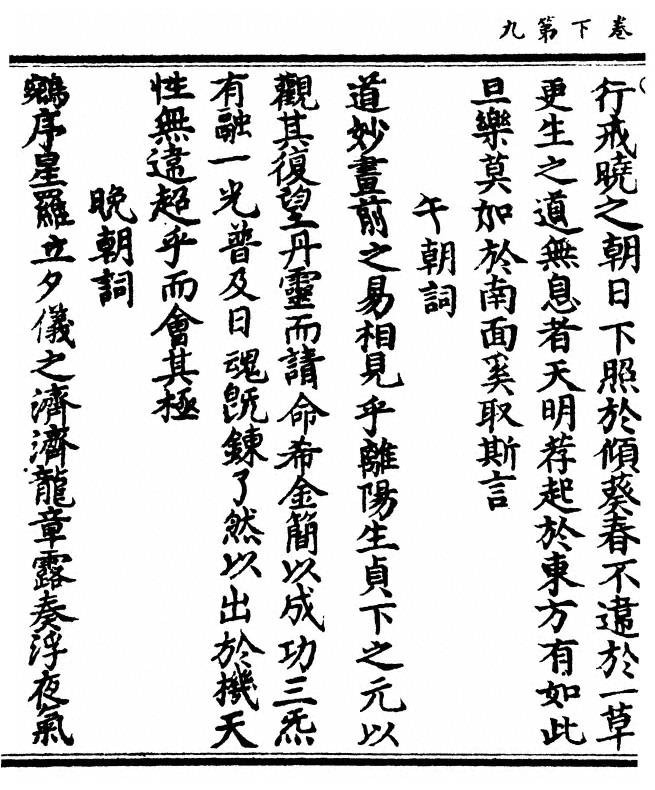 卷下第九
行戒曉之朝日下照於傾葵春不違於一草
更生之道無息者天明荐起於東方有如此
旦樂莫如於南面奚取斯言
午朝詞
道妙晝前之易相見乎離陽生貞下之元以
觀其復望丹靈而請命希金簡以成功三炁
有融一光普及日魂旣鍊了然以出於機天
性無違超乎而會其極
晚朝詞
鵷序星羅立夕儀之濟濟龍章露奏浮夜氣